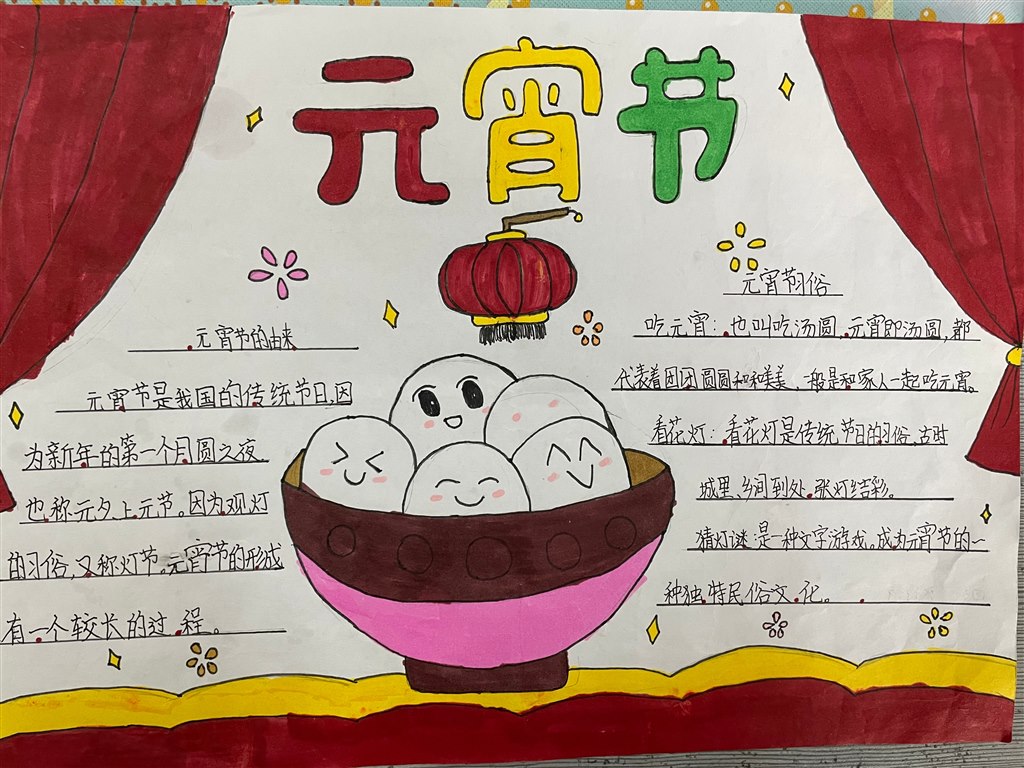 元宵节
元宵节的由来
元宵节是我国的传统节日,因
为新年的第一个月圆之夜
也称元夕、上元节。因为观灯
的习俗,又称灯节。元宵节的形成
有一个较长的过程。
元宵节习俗
吃元宵:也叫吃汤圆,元宵即汤圆,都
代表着团团圆圆和和美美,一般是和家人一起吃元宵。
看花灯:看花灯是传统节日的习俗,古时
城里、乡间到处张灯结彩。
猜灯谜:是一种文字游戏,成为元宵节的一
种独特民俗文化。